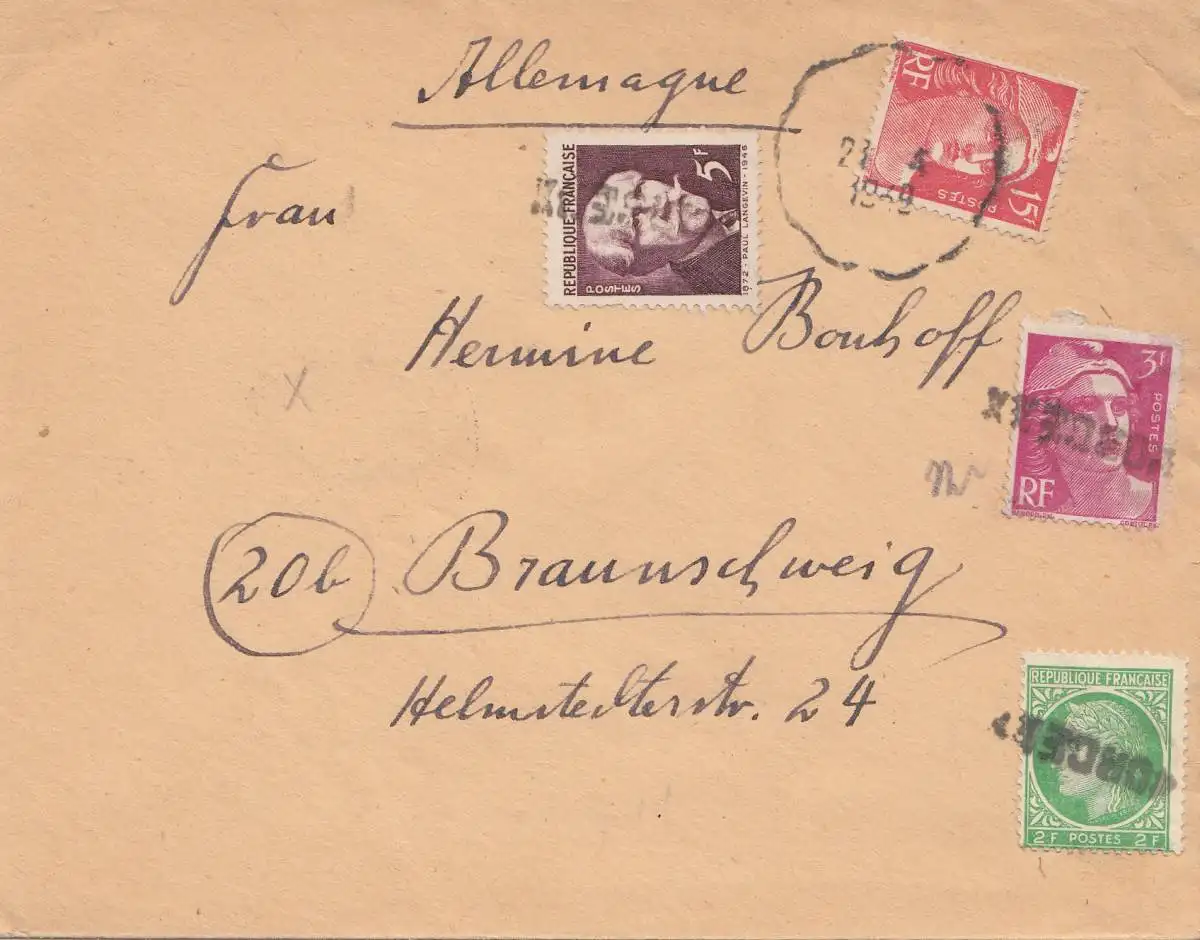 Allemagne
RF
15F
POSTES
21 4
1949
REPUBLIQUE FRANÇAISE
5F
POSTES
1872 - PAUL LANGEVIN - 1946
Frau
Hermine Bonhoff
3F
POSTES
RF
20b Braunschweig
Helmstedterstr. 24
REPUBLIQUE FRANÇAISE
2F POSTES 2F